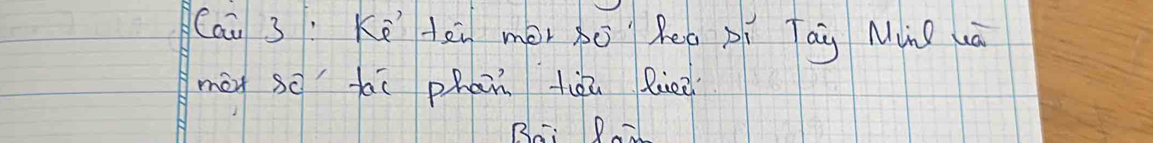 Câu 3 : Kể tên một số họa sĩ Tây Minl và
một số tác phẩm tiêu biểu
Bài làm